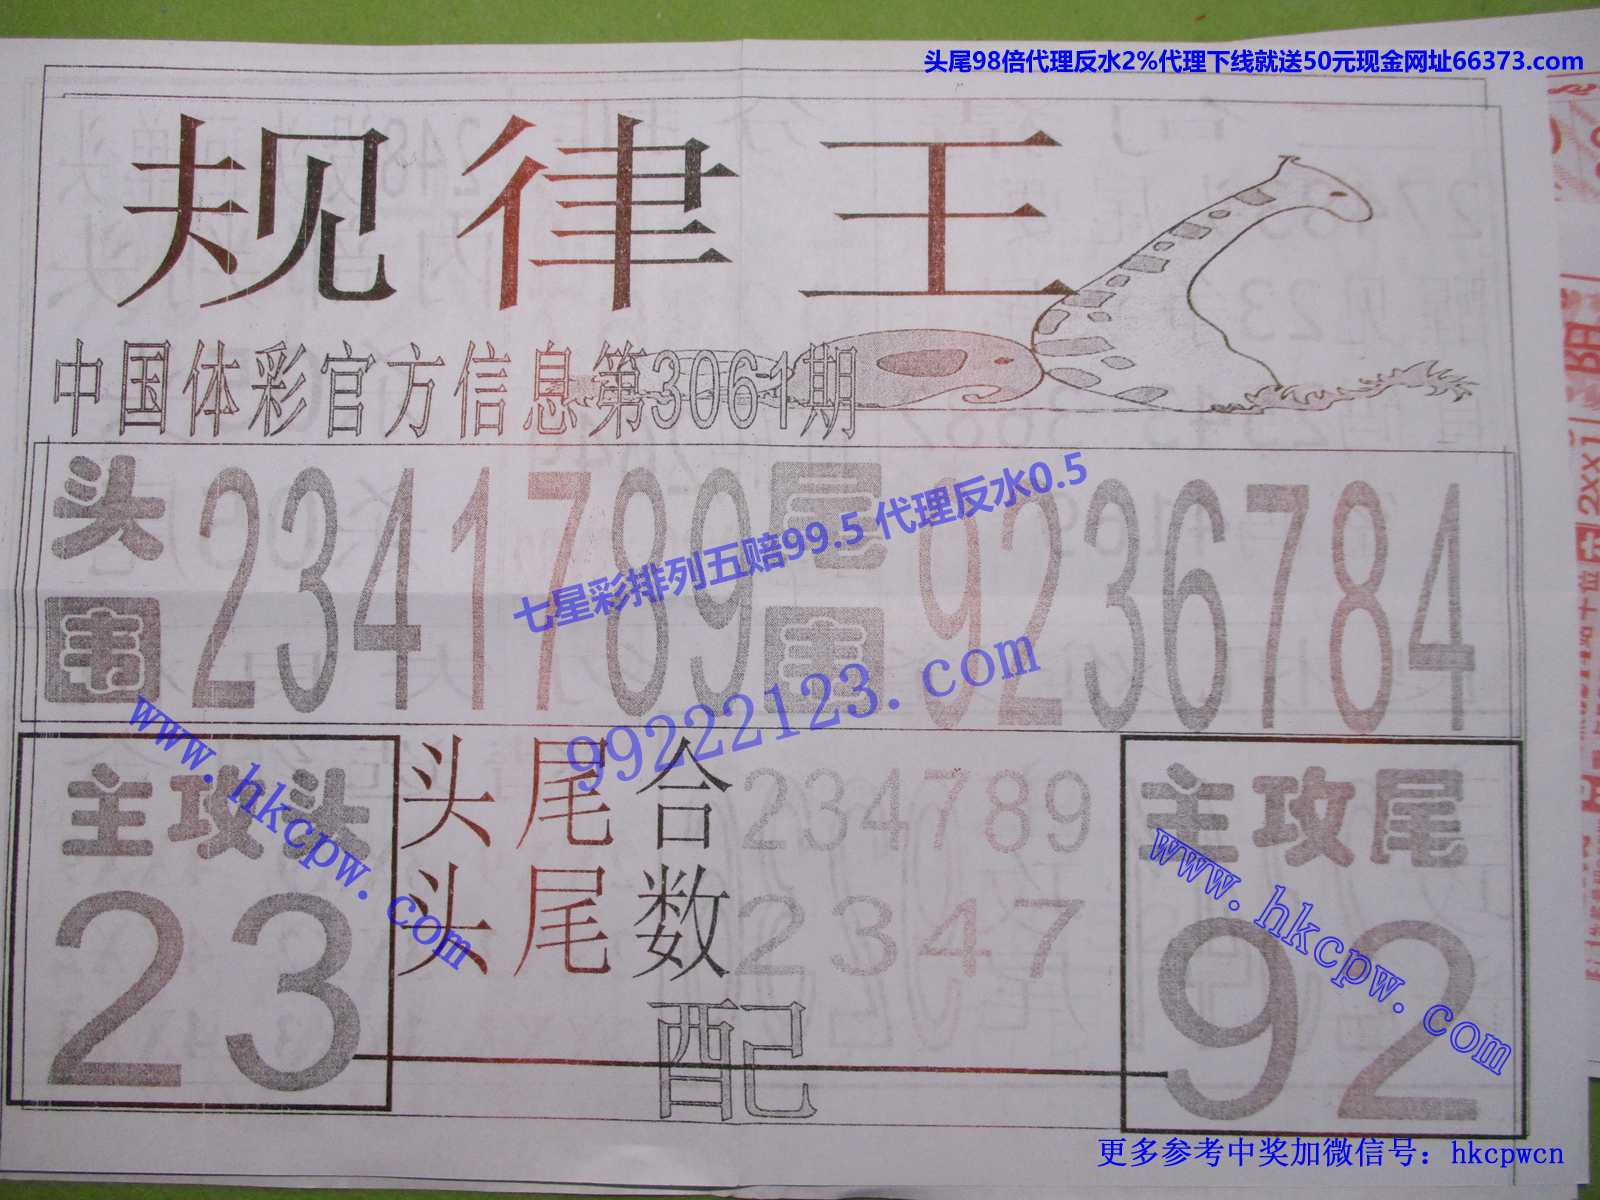 头尾98倍代理反水2%代理下线就送50元现金网址66373.com
规律王
中国体彩官方信息第3061期
头围 2341789 尾围 9236784
七星彩排列五赔99.5 代理反水0.5
99222123.com
www.hkcpw.com
主攻头
23
头尾合 234789
头尾数 2347
配
主攻尾
92
www.hkcpw.com
更多参考中奖加微信号：hkcpwcn